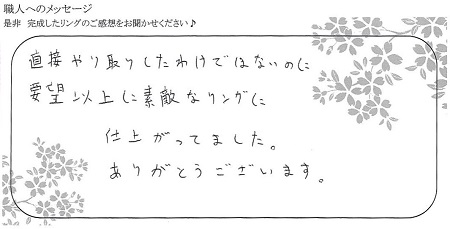 職人へのメッセージ
是非 完成したリングのご感想をお聞かせください♪
直接やり取りしたわけではないのに
要望以上に素敵なリングに
仕上がってました。
ありがとうございます。